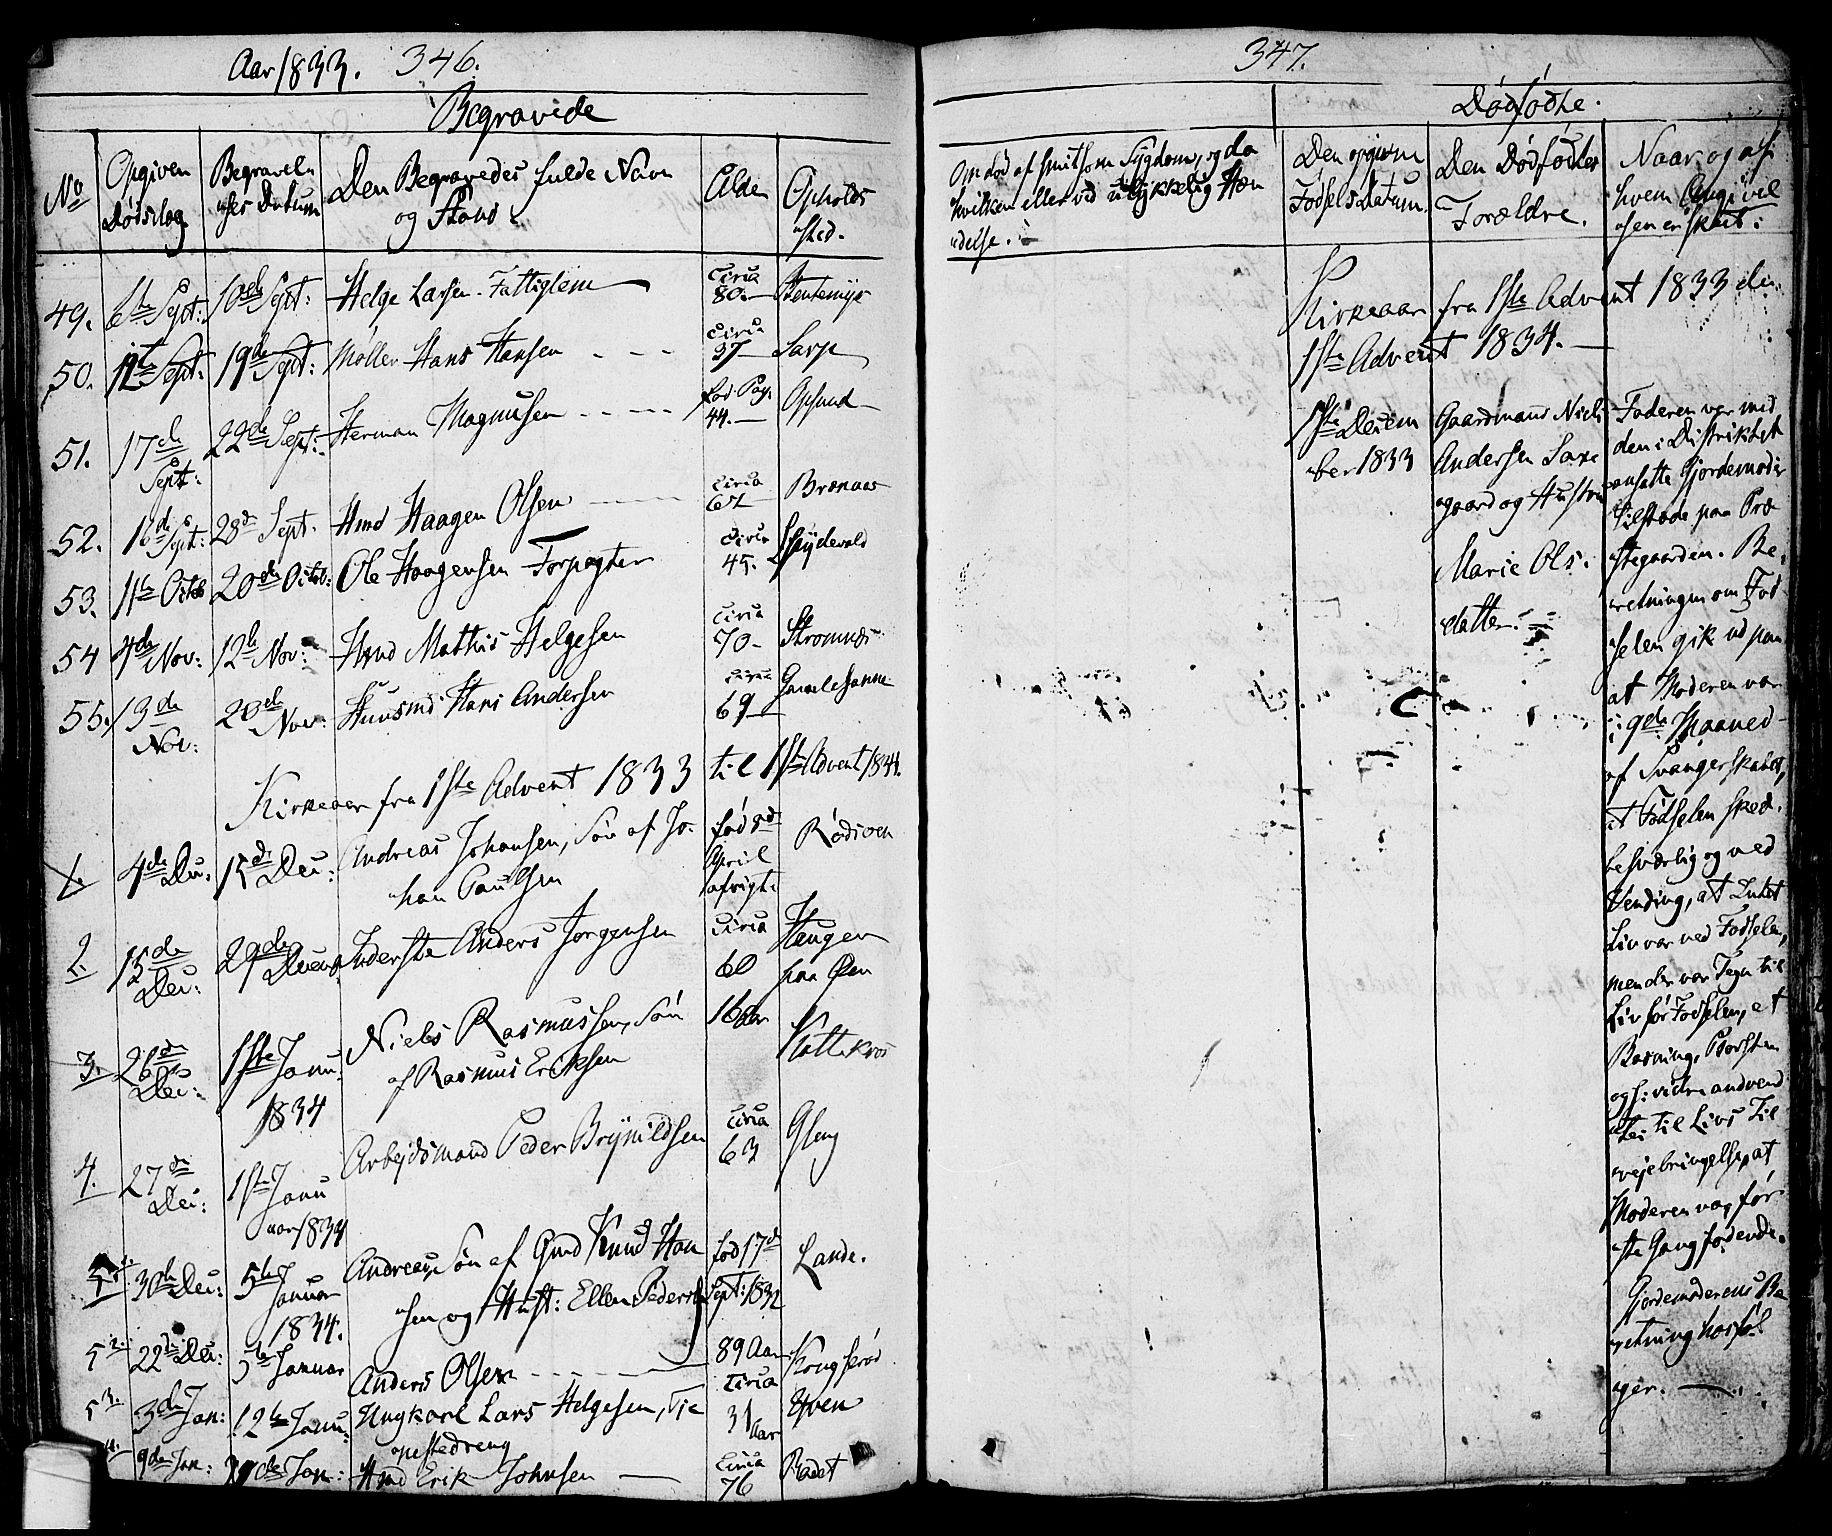 Aar 1833. 346.
Begravede
No
Opgiven Dødsdag
Begravelsens Datum
Den Begravedes fulde Navn og Stand.
Alder
Opholdssted.
49. 6te Sept: 10de Sept: Helge Larsen Fattiglem circa 80. Bentemys
50. 12te Sept: 19de Sept: Møller Hans Hansen circa 37 Sarp
51. 17de Sept: 22de Sept: Herman Magnusen fød. Pag. 44. Opsund
52. 16de Sept: 28de Sept. Hmd Haagen Olsen circa 67 Brenaas
53. 11te Octob 20de Octob: Ole Haagensen Forpagter circa 45.
54 4de Nov: 12te Nov: Hmd Mathis Helgesen circa 70 Stromnes
55. 13de Nov: 20de Nov: Huusmd Hans Andersen circa 69
Kirkeaar fra 1ste Advent 1833 til 1ste Advent 1834.
1. 4de Dec. 15de Dec: Andreas Johansen, Søn af Jo-
han Paulsen fød 8de April afvigt:
2. 15de Dec: 29de Decemb Inderste Anders Jørgensen circa 60 Haugen paa Øen
3. 26de Dec: 1ste Janu: 1834 Niels Rasmussen, Søn
af Rasmus Eriksen 16 Aar Kattekros
4. 27de Dec: 1ste Januar 1834 Arbejdsmand Peder Brynildsen circa 63 Gleng
30te Dec: 5te Januar 1834. Andreas, Søn af Gmd Knud Han
sen og Hust: Ellen Pedersd fød 17de Sept: 1832 Lande.
5 2. 22de Dec: 5te Januar Anders Olsen 89 Aar
5 3. 3de Jan: 12te Janu: Ungkarl Lars Helgesen, Tje
nestedreng circa 31 Aar
9de Jan: Jan: Hmd Erik Johnsen circa 76 Badet
347.
Dødfødte.
Om død af smitsom Sygdom, og da
hvilken eller ved ulykkelig Hæn
delse.
Den opgivne Fødsels Datum.
Den Dødfødtes Forældre.
Naar og af hvem Angivelsen er skeet:
Kirkeaar fra 1ste Advent 1833 til
1ste Advent 1834.
1ste Decem
ber 1833
Gaardmand Niels
Andersen Saxe
gaard og Hustru
Marie Ols:
datter.
Faderen var med
den i Distriktet
ansatte Gjordemoder
tilstæde paa Præ
stegaarden. Be,
retningen om Fød
selen gik ud paa
at Moderen var
i 9de Maaned
af Svangerskabet,
at Fødselen skede
besværlig og ved
Vending, at Intet
Liv var ved Fødselen,
men der var Tegn til
Liv før Fødselen, at
Badning, Børsten
og s: videre anvend
tes til Livs Til
vejebringelse, at
Moderen var før
ste Gang fødende.
Gjordemoderens Be
retning hosføl
ger.